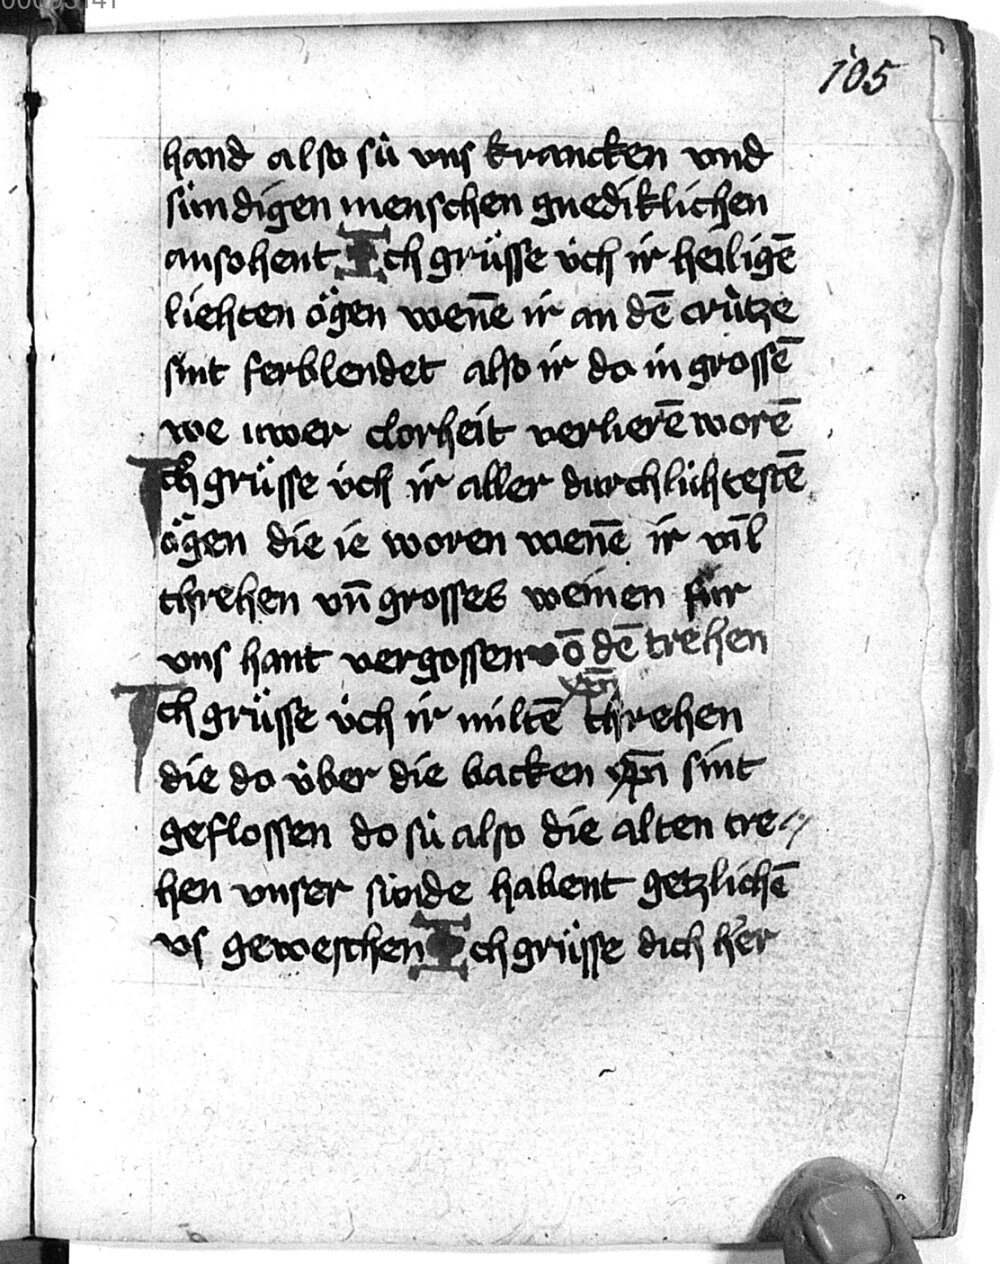 105
hand also sü vns krancken vnd
sündigen menschen gnediklichen
ansohent Ich grüsse üch ir heiligē
liehten ögen wenn̄e ir an dē crütze
sint ferblendet also ir do in grossē
we uwer clorheit verlierē worē
Ich grüsse üch ir aller durchlüchtestē
ögen die ie woren wenn̄e ir vil
threhen vn̄ grosses weinen für
vns hant vergossen vō dē trehen
Ich grüsse üch ir miltē xp̄i threhen
die do über die backen xp̄i sint
geflossen do sü also die alten tre//
hen vnser sünde habent getzlichē
vs geweschen Ich grüsse dich her